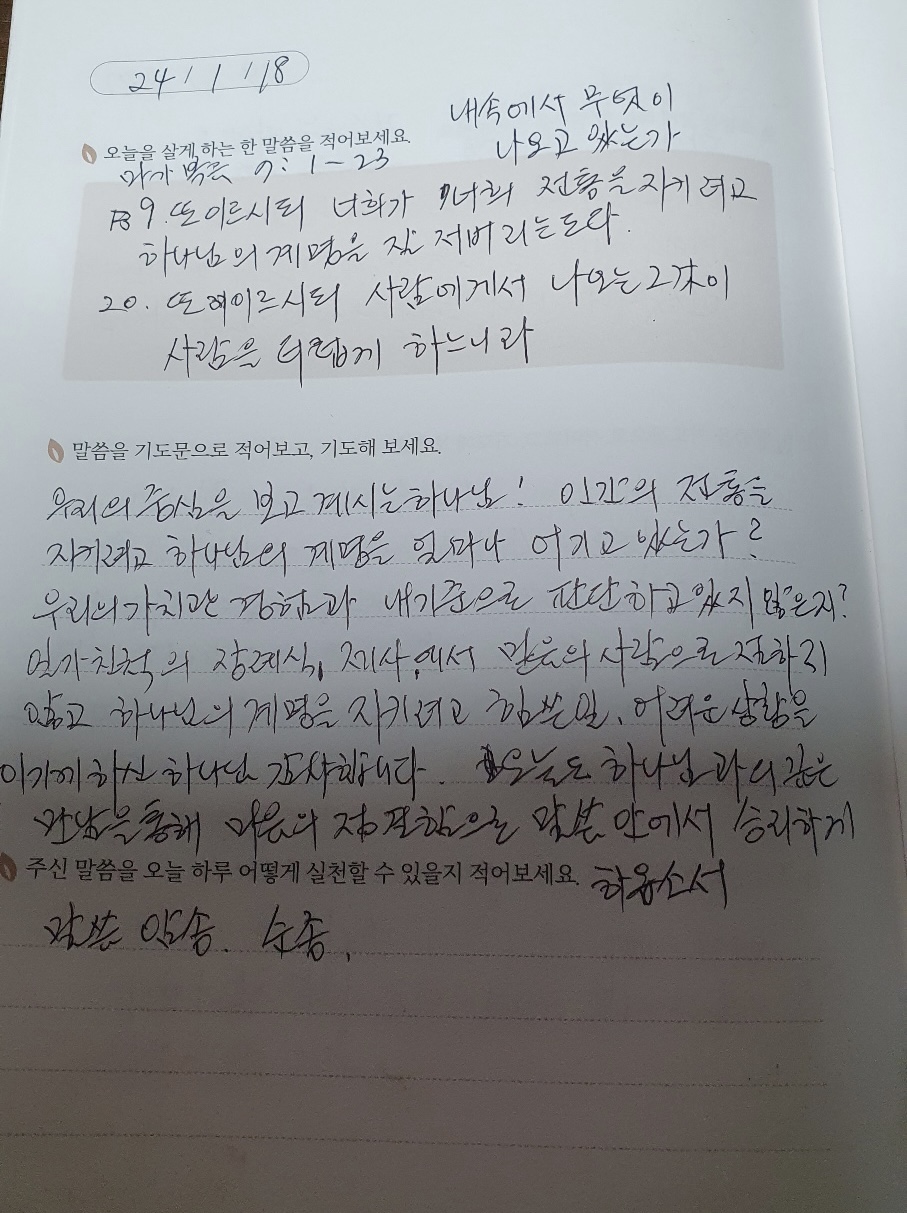 24 / 1 / 18
내속에서 무엇이
나오고 있는가
오늘을 살게 하는 한 말씀을 적어보세요
마가복음 7:1-23
9. 또 이르시되 너희가 너희 전통을 지키려고
하나님의 계명을 잘 저버리는도다.
20. 또 이르시되 사람에게서 나오는 그것이
사람을 더럽게 하느니라
말씀을 기도문으로 적어보고, 기도해 보세요.
우리의 중심을 보고 계시는 하나님! 인간의 전통을
지키려고 하나님의 계명을 얼마나 어기고 있는가?
우리의 가치관 경험과 내기준으로 판단하고 있지 않은지?
일가친척의 장례식, 제사에서 믿음의 사람으로 절하지
않고 하나님의 계명을 지키려고 힘쓴일, 어려운 상황을
이기게 하신 하나님 감사합니다. 오늘도 하나님과의 깊은
만남을 통해 마음의 정결함으로 말씀 안에서 승리하게
하옵소서
주신 말씀을 오늘 하루 어떻게 실천할 수 있을지 적어보세요.
말씀 암송. 순종,